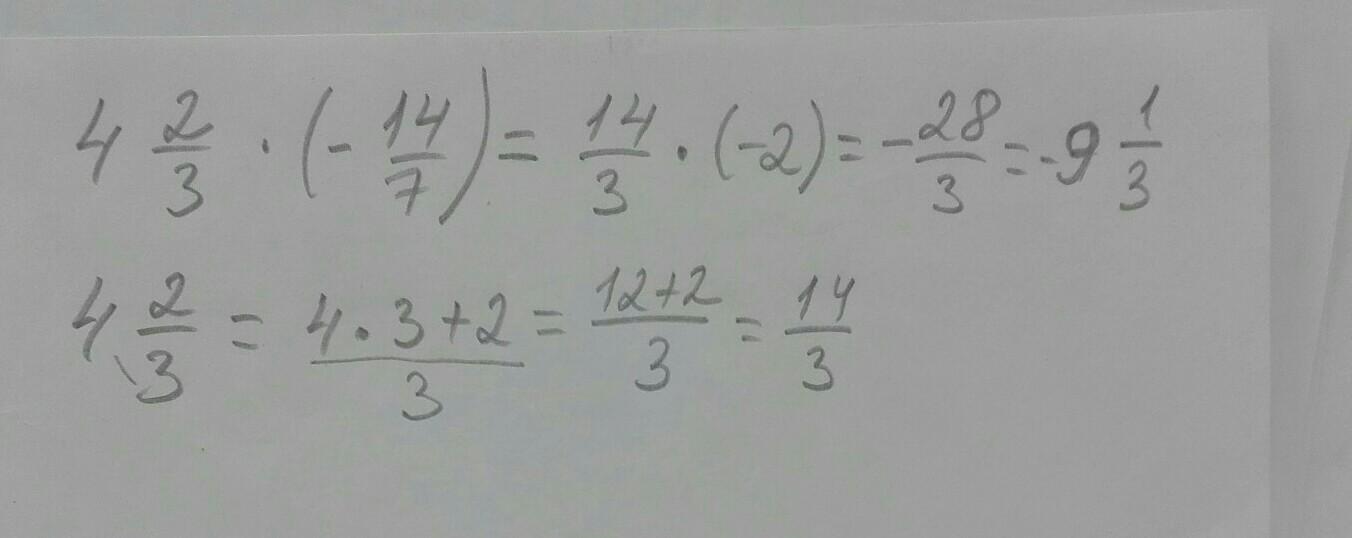 4 2/3 · (- 14/7) = 14/3 · (-2) = - 28/3 = -9 1/3
4 2/3 = 4·3+2/3 = 12+2/3 = 14/3